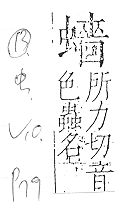 所力切音
色蟲名
虫.
V10.
P79